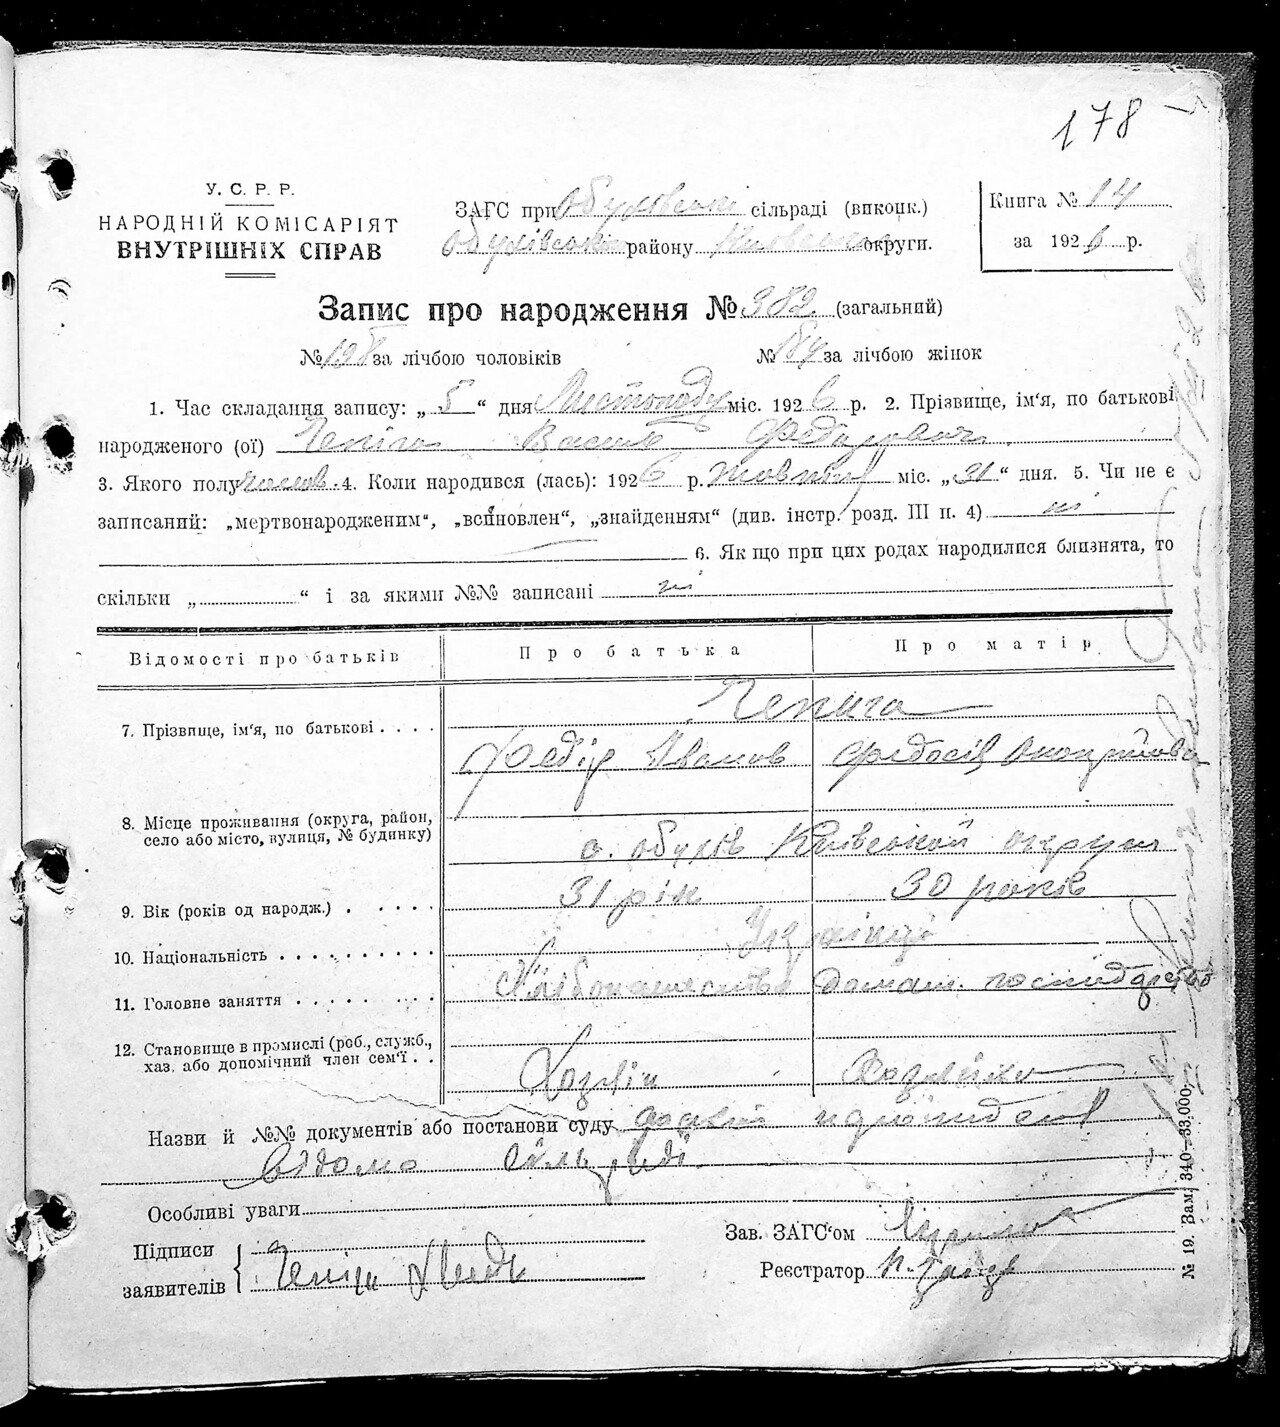 178
У. С. Р. Р.
НАРОДНІЙ КОМІСАРІЯТ
ВНУТРІШНІХ СПРАВ
ЗАГС при Обухівські сільраді (викоцк.)
Обухівського району Київської округи.
Книга № 14
за 1926 р.
Запис про народження № 382 (загальний)
№ 198 за лічбою чоловіків
№ 184 за лічбою жінок
1. Час складання запису: „ 5 “ дня Листопаду міс. 1926 р. 2. Прізвище, ім'я, по батькові
народженого (ої) Чепіга Василь Федорович.
3. Якого полу чолов. 4. Коли народився (лась): 1926 р. Жовтня міс. „31“ дня. 5. Чи не є
записаний: „мертвонародженим“, „всиновлен“, „знайденням“ (див. інстр. розд. III п. 4) ні
6. Як що при цих родах народилися близнята, то
скільки „ “ і за якими №№ записані ні
Відомості про батьків
Про батька
Про матір
7. Прізвище, ім'я, по батькові . . . .
Чепига
Федір Иванов
Федосія
8. Місце проживання (округа, район,
село або місто, вулиця, № будинку)
с. Обухів Київської округи
9. Вік (років од народж.) . . . . .
31 рік
30 років
10. Національність . . . . . . . . . .
Українці
11. Головне заняття . . . . . . . .
Хлібопашество
домаш. господарство
12. Становище в промислі (роб., служб.,
хаз. або допомічний член сем'ї . .
Хазяїн
Хазяйка
Назви й №№ документів або постанови суду
відомо Сільраді.
Особливі уваги
Підписи
заявителів
Чепіга
Зав. ЗАГС'ом
Реєстратор
№ 19. Зам. 340—33.000.